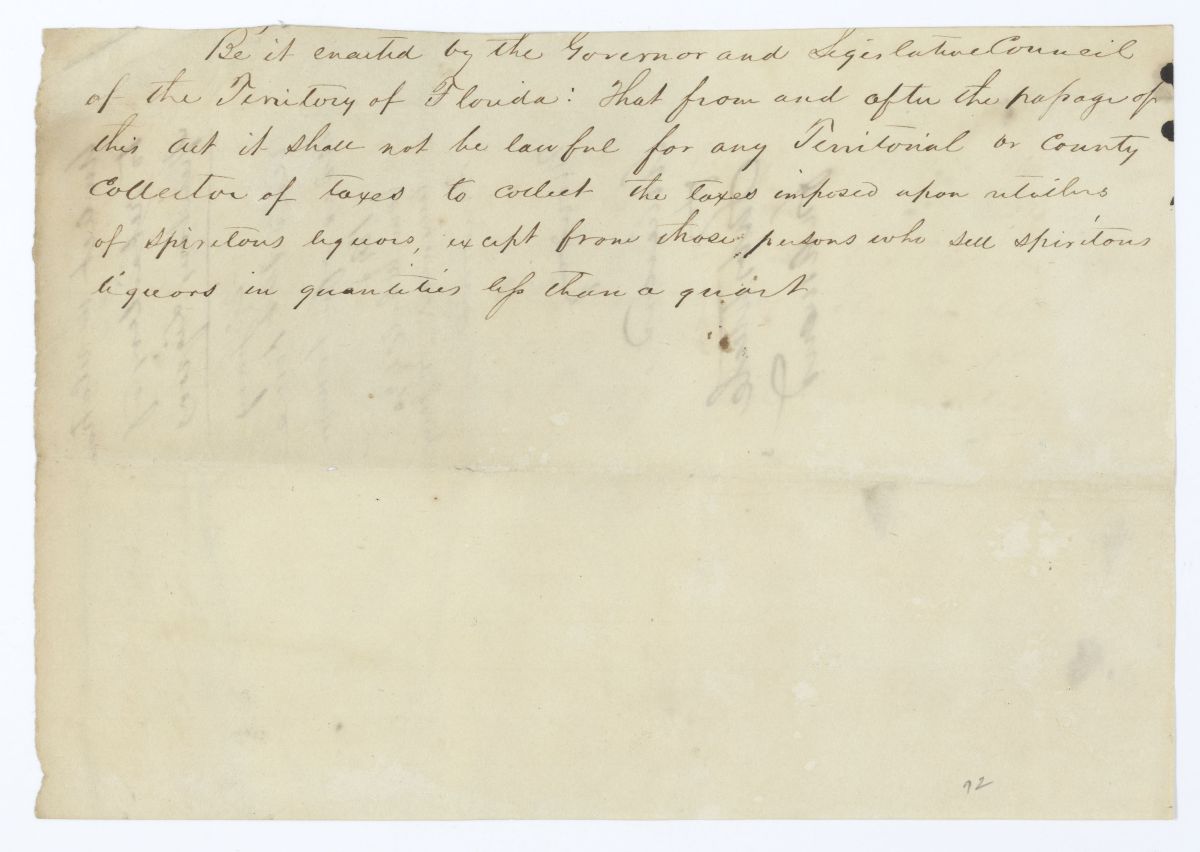 Be it enacted by the Governor and Legislative Council
of the Territory of Florida: That from and after the passage of
this act it shall not be lawful for any Territorial or County
Collector of taxes to collect the taxes imposed upon retailers
of spiritous liquors, except from those persons who sell spiritous
liquors in quantities less than a quart
72